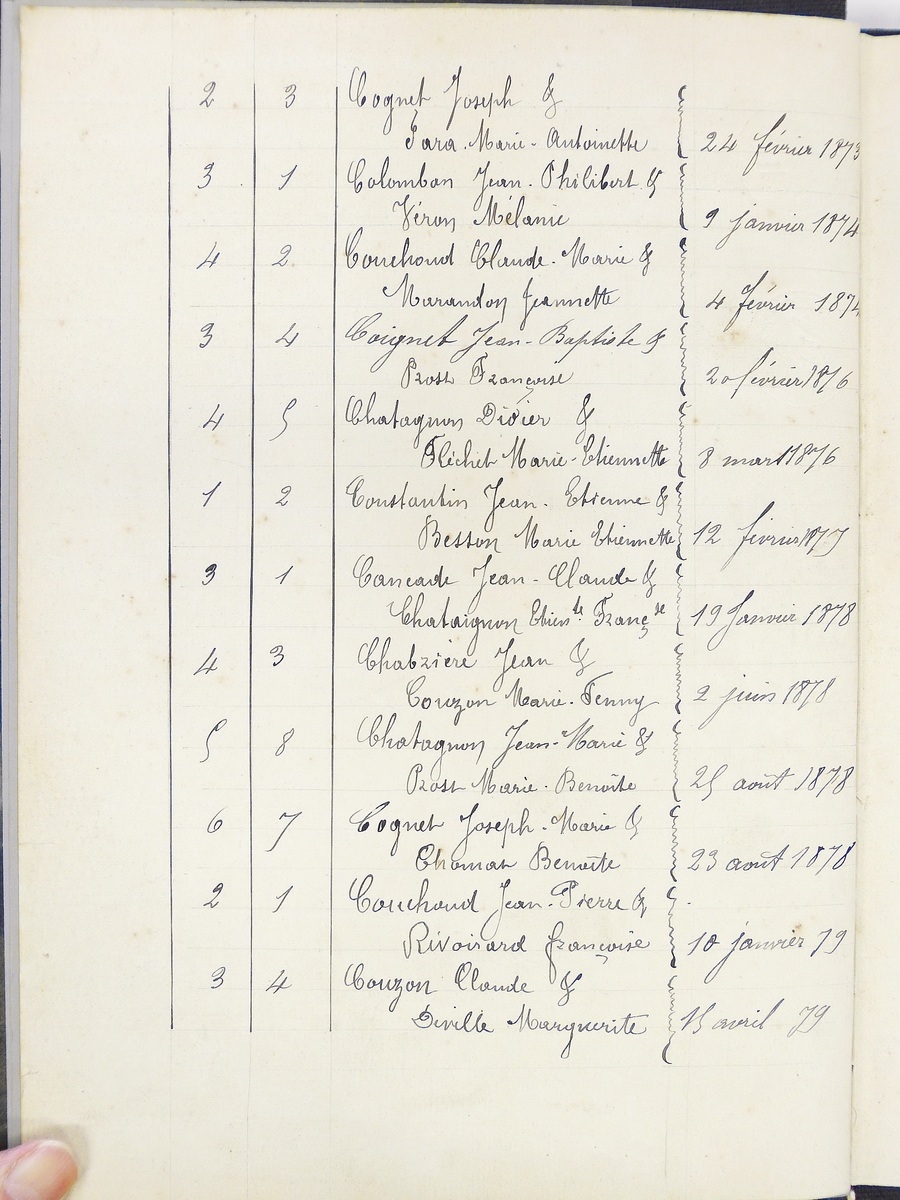 2 3 Cognet Joseph &
Fara Marie-Antoinette 24 février 1873
3 1 Colomban Jean-Philibert &
Véron Mélanie 9 janvier 1874
4 2 Couchoud Claude-Marie &
Marandon Jeannette 4 février 1874
3 4 Coignet Jean-Baptiste &
Prost Françoise 20 février 1876
4 5 Chatagnon Didier &
Fléchet Marie-Etiennette 8 mars 1876
1 2 Constantin Jean-Etienne &
Besson Marie Etiennette 12 février 1877
3 1 Cancade Jean-Claude &
Chataignon Etien.te Franç.se 19 Janvier 1878
4 3 Chabzière Jean &
Couzon Marie-Fenny 2 juin 1878
5 8 Chatagnon Jean-Marie &
Prost Marie-Benoîte 25 août 1878
6 7 Cognet Joseph-Marie &
Thomas Benoîte 23 août 1878
2 1 Couchoud Jean-Pierre &
Rivoirard françoise 10 janvier 79
3 4 Couzon Claude &
Diville Marguerite 15 avril 79